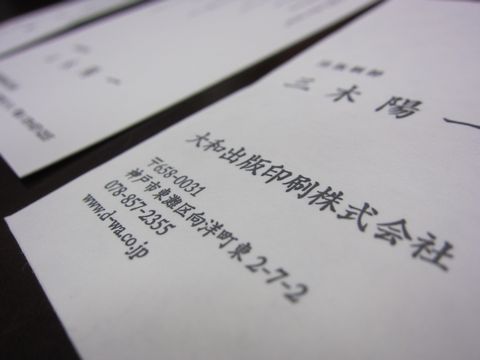 三木 陽一
大和出版印刷株式会社
〒658-0031
神戸市東灘区向洋町東2-7-2
078-857-2355
www.d-wa.co.jp